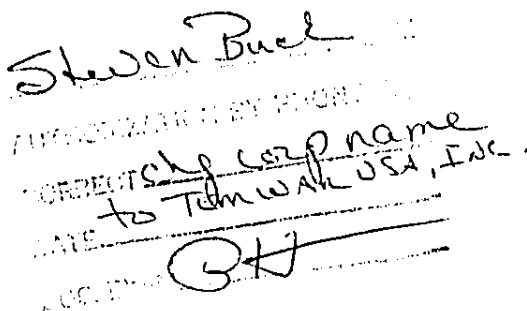 Steven Buck
AUTHORIZATION BY PHONE
CORRECT chg corp name
to Tumwak USA, Inc.
DATE